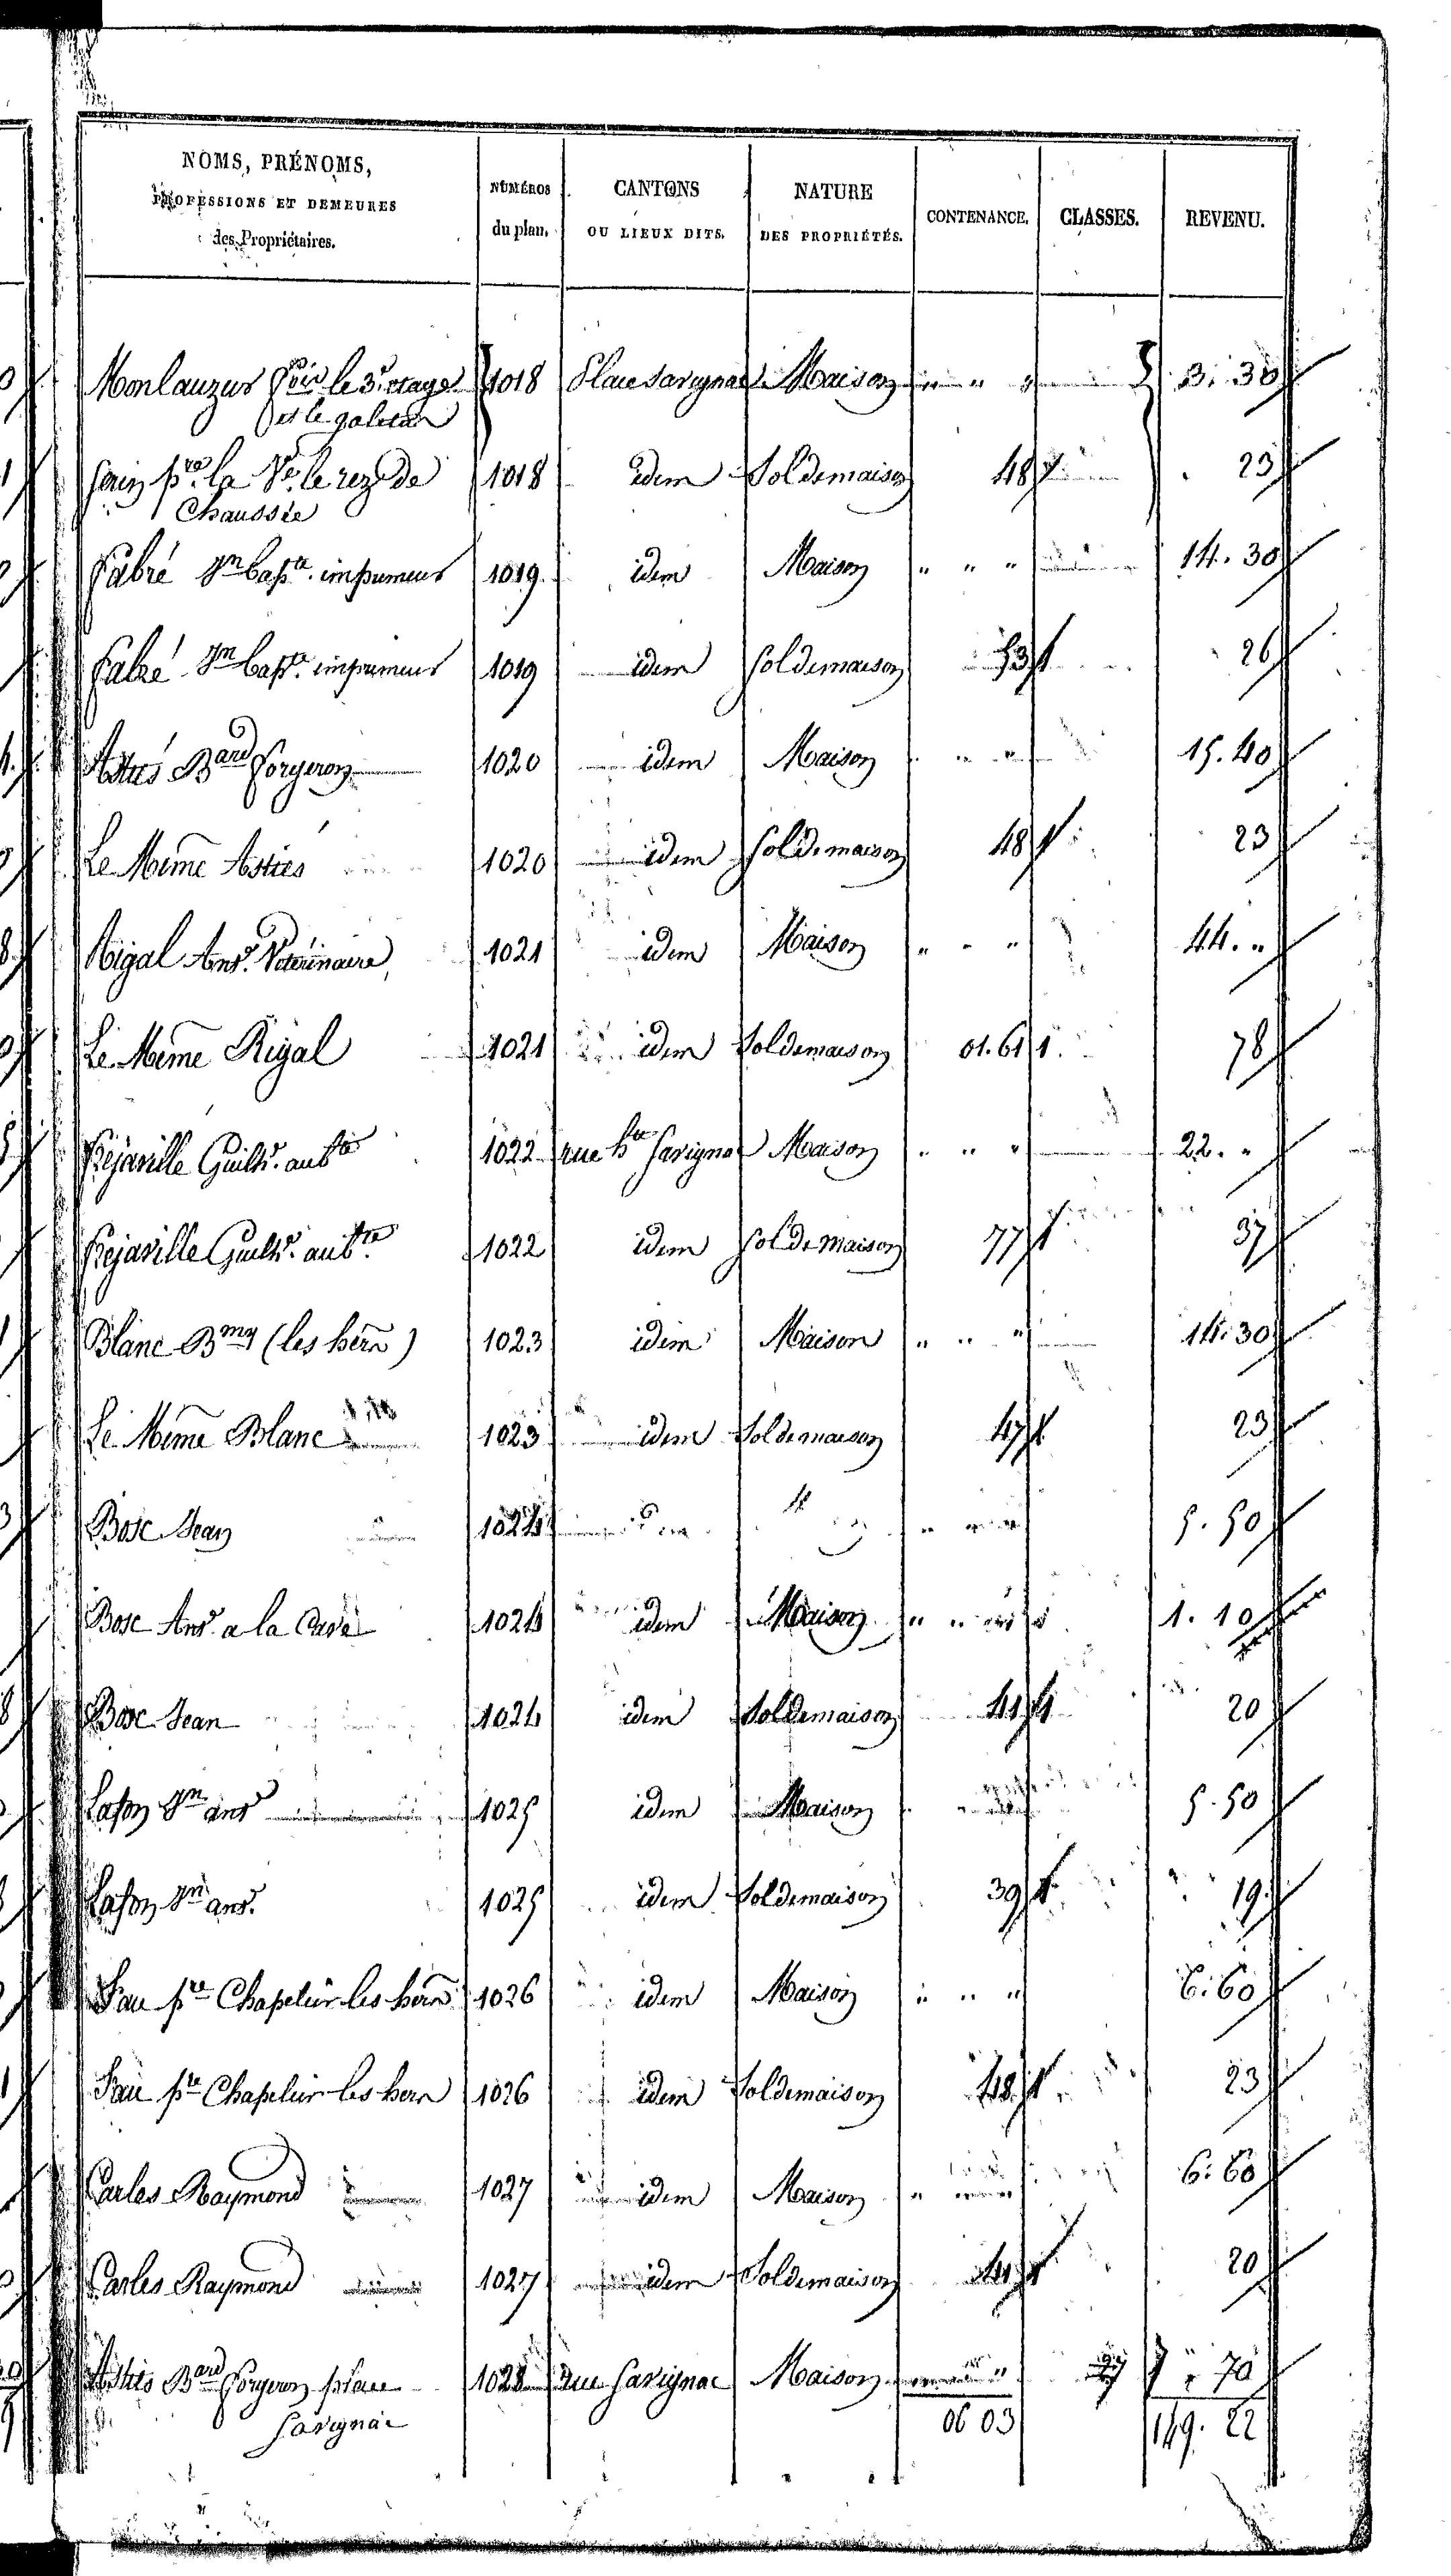 NOMS, PRÉNOMS,
PROFESSIONS ET DEMEURES
des Propriétaires.
NUMÉROS
du plan.
CANTONS
OU LIEUX DITS.
NATURE
DES PROPRIÉTÉS.
CONTENANCE.
CLASSES.
REVENU.
Monlauzur le 3e etage 1018 Place Savignac Maison " " " 3. 30
et le galetas
la Ve. le rez de 1018 idem Sol de maison 48 1 23
Chaussée
Fabré Jn Bapte. imprimeur 1019 idem Maison " " " 14. 30
Fabré Jn Bapte. imprimeur 1019 idem Sol de maison 53 1 26
Astiés Bard forgeron 1020 idem Maison " " 15. 40
Le Meme Astiés 1020 idem Sol de maison 48 1 23
Rigal Ant. Véterinaire 1021 idem Maison " " " 44. "
Le Meme Rigal 1021 idem Sol de maison 01. 61 1 78
Frejaville Guilh. aubte 1022 rue hte Savignac Maison " " " 22. "
Frejaville Guilh. aubte 1022 idem Sol de maison 77 1 37
Blanc Bmy (les hers) 1023 idem Maison " " " 14. 30
Le Meme Blanc 1023 idem Sol de maison 47 1 23
Bosc Jean 1024 " 5. 50
Bosc Ant. a la Cave 1024 idem Maison " " 1. 10
Bosc Jean 1024 idem Sol de maison 41 1 20
Lafon Jn ant 1025 idem Maison 5. 50
Lafon Jn ant. 1025 idem Sol de maison 39 1 19
Fau pre Chapelier les hers 1026 idem Maison " " " 6. 60
Fau pre Chapelier les hers 1026 idem Sol de maison 48 1 23
Carles Raymond 1027 idem Maison " 6. 60
Carles Raymond 1027 idem Sol de maison 41 1 20
Astiés Bard forgeron place 1028 rue Savignac Maison " 7 " 70
Savignac
06 03 149. 22